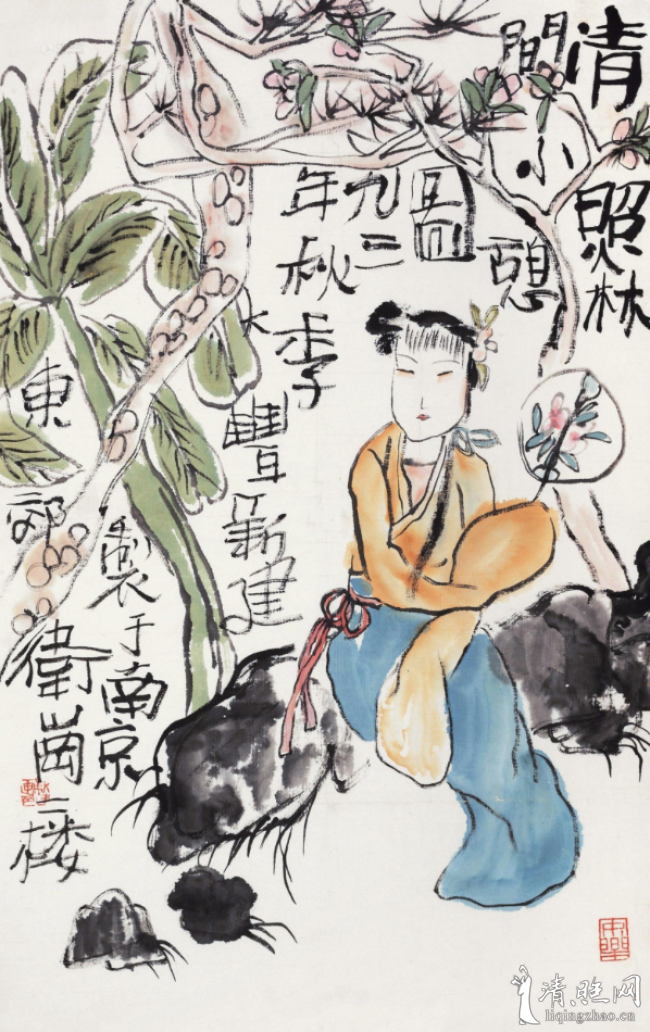 清照林
間小憩
圖
九三
年秋季
大豐新建
製于南京
東郊
衛崗二楼
清照网
liqingzhao.cn